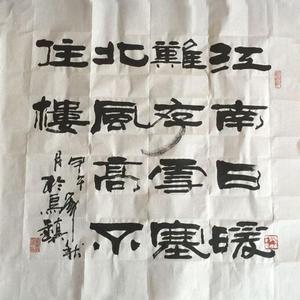 江南日暖
難存雪塞
北風高不
住樓
甲午秋
月於